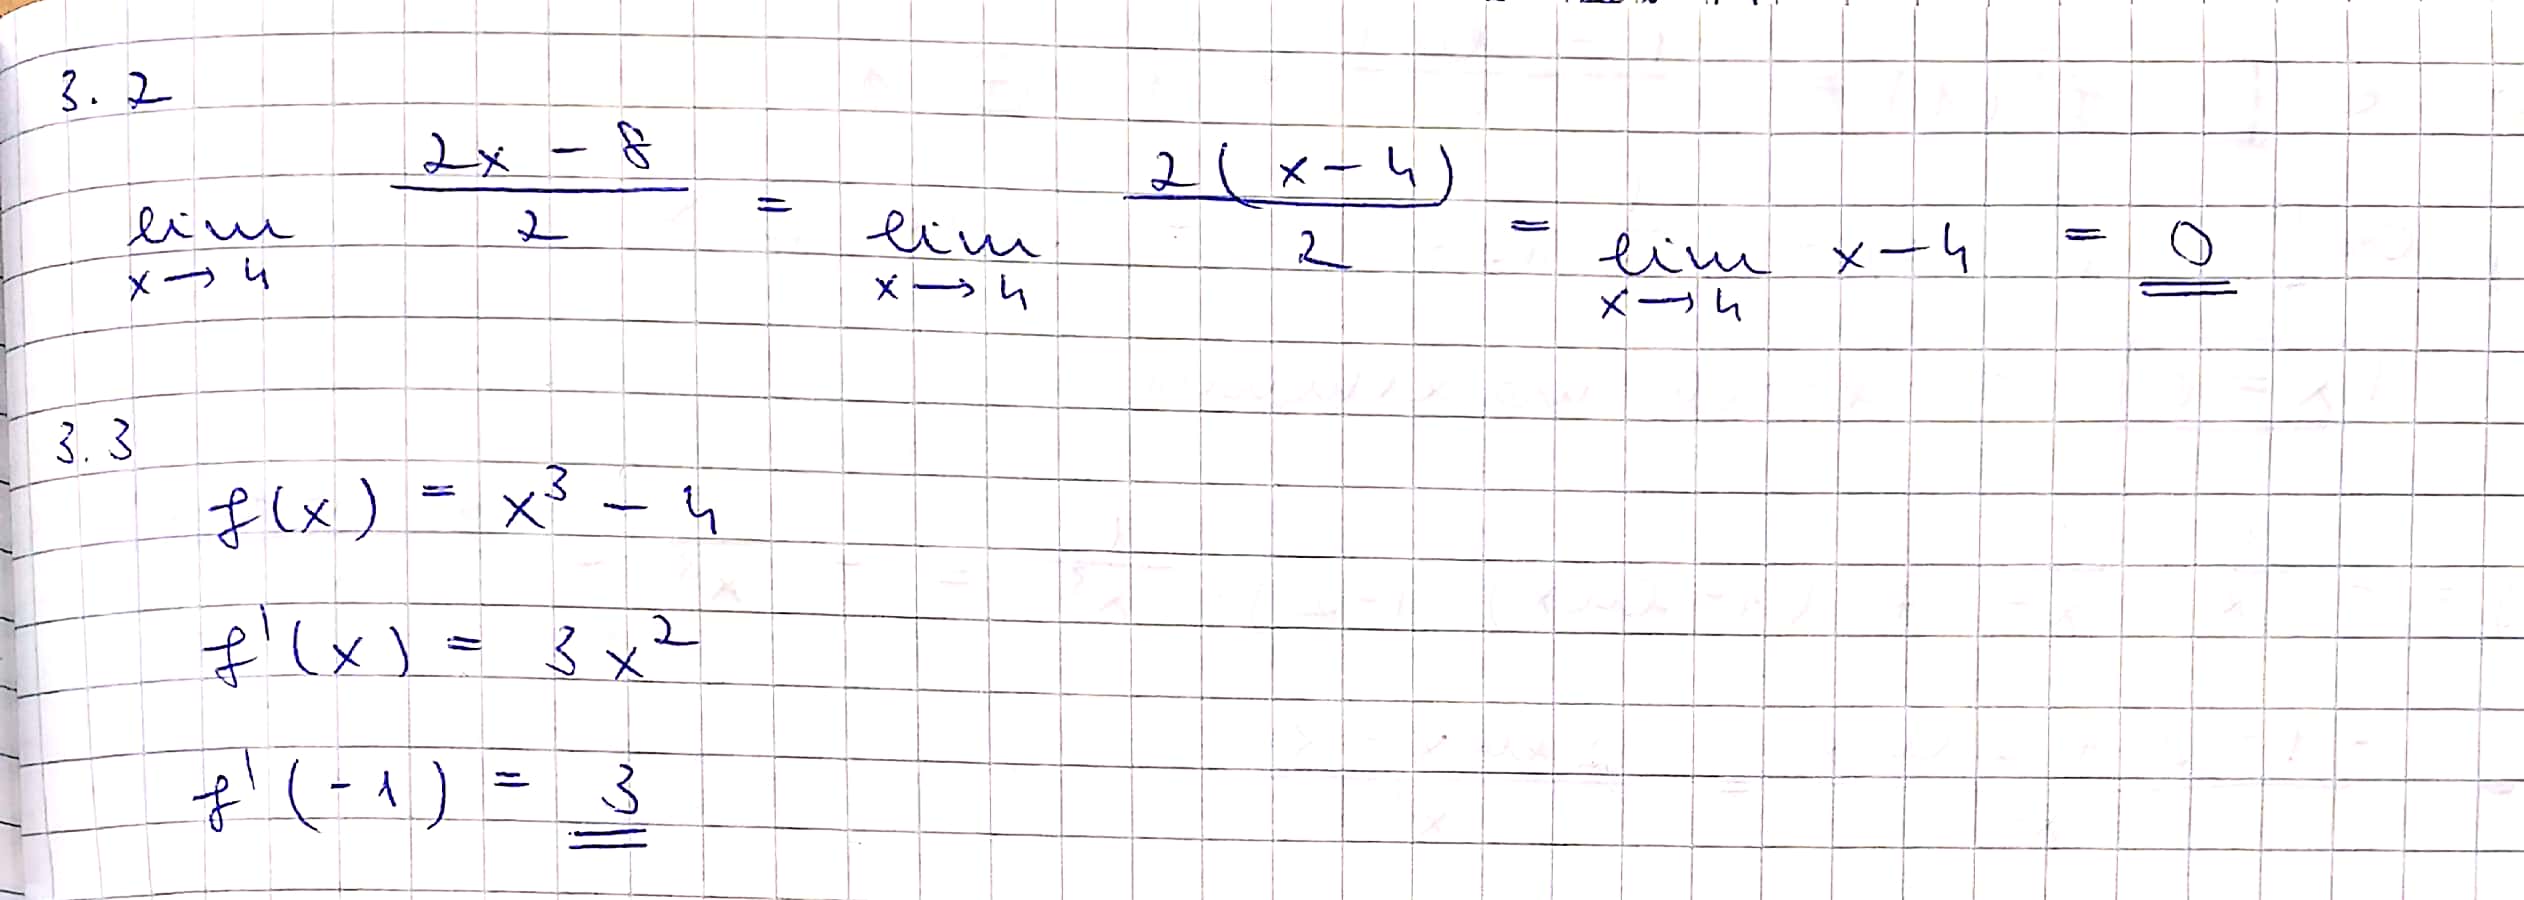 3.2
lim x→4 (2x - 8)/2 = lim x→4 2(x-4)/2 = lim x→4 x-4 = 0
3.3
f(x) = x³ - 4
f'(x) = 3x²
f'(-1) = 3